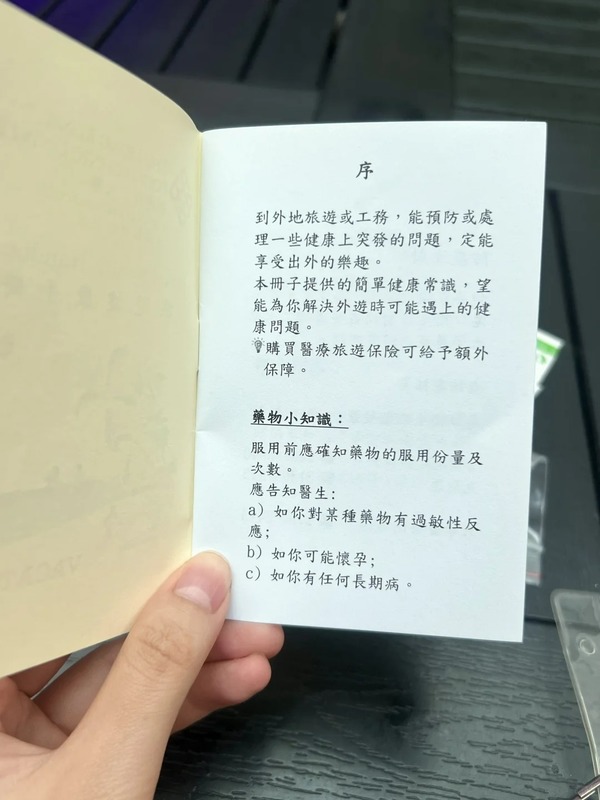 序
到外地旅遊或工務，能預防或處
理一些健康上突發的問題，定能
享受出外的樂趣。
本冊子提供的簡單健康常識，望
能為你解決外遊時可能遇上的健
康問題。
購買醫療旅遊保險可給予額外
保障。
藥物小知識：
服用前應確知藥物的服用份量及
次數。
應告知醫生:
a) 如你對某種藥物有過敏性反
應;
b) 如你可能懷孕;
c) 如你有任何長期病。